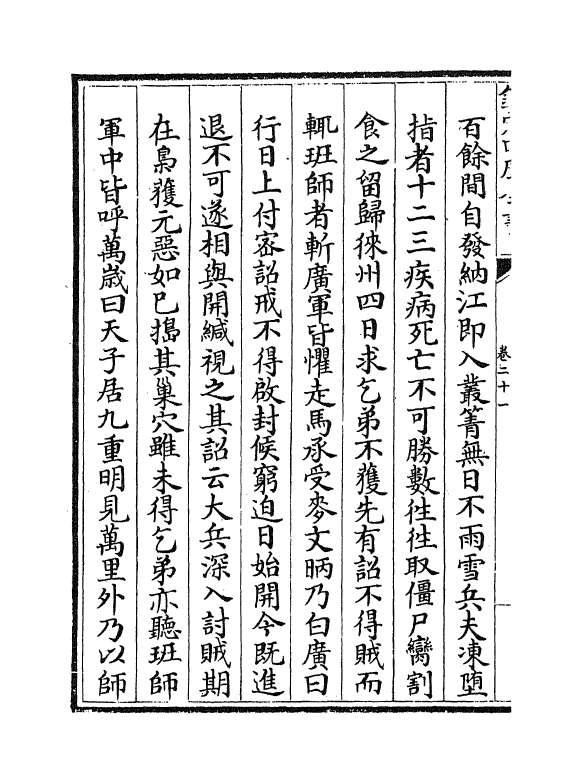 百餘間自發納江即入叢箐無日不雨雪兵夫凍堕
指者十二三疾病死亡不可勝數徃徃取僵尸臠割
食之留歸徠州四日求乞弟不獲先有詔不得賊而
輒班師者斬廣軍皆懼走馬承受麥文昞乃白廣曰
行日上付宻詔戒不得啟封候窮迫日始開今既進
退不可遂相與開緘視之其詔云大兵深入討賊期
在梟獲元惡如已搗其巢穴雖未得乞弟亦聽班師
軍中皆呼萬歳曰天子居九重明見萬里外乃以師
卷二十一